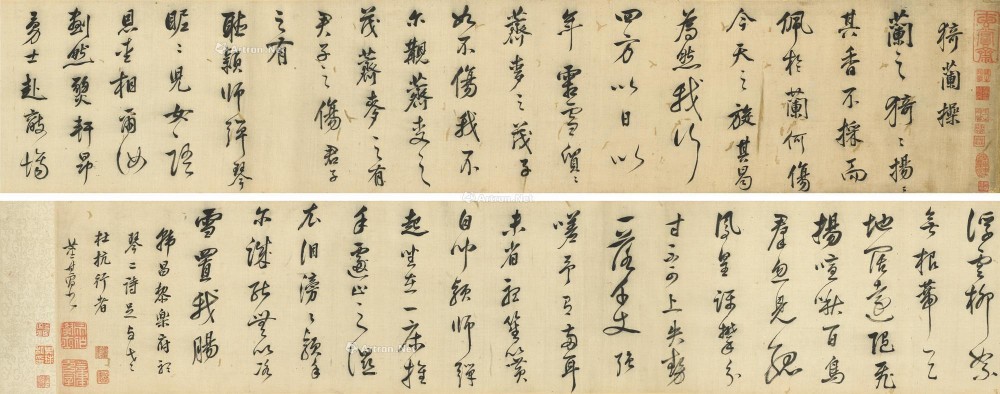 猗蘭操
蘭之猗〻揚〻
其香不採而
佩於蘭何傷
今天之旋其曷
為然我行
四方以日以
年霜雪貿〻
薺麥之茂子
如不傷我不
爾觀薺麥之
茂薺麥之有
君子之傷君子
之守
聽穎師彈琴
昵〻兒女〻語
恩怨相爾汝
劃然變軒昂
勇士赴敵場
浮雲柳絮
無根蒂天
地闊遠隨飛
揚喧啾百鳥
群忽見孤
鳳皇躋攀分
寸不可上失勢
一落千丈強
嗟予有兩耳
未省聽笙簧
自聞穎師彈
起坐在一床推
手遽止之濕
衣淚滂〻穎乎
爾誠能無以冰
雪置我腸
韓昌黎樂府聽
琴二詩是與老
杜抗行者
董其昌書